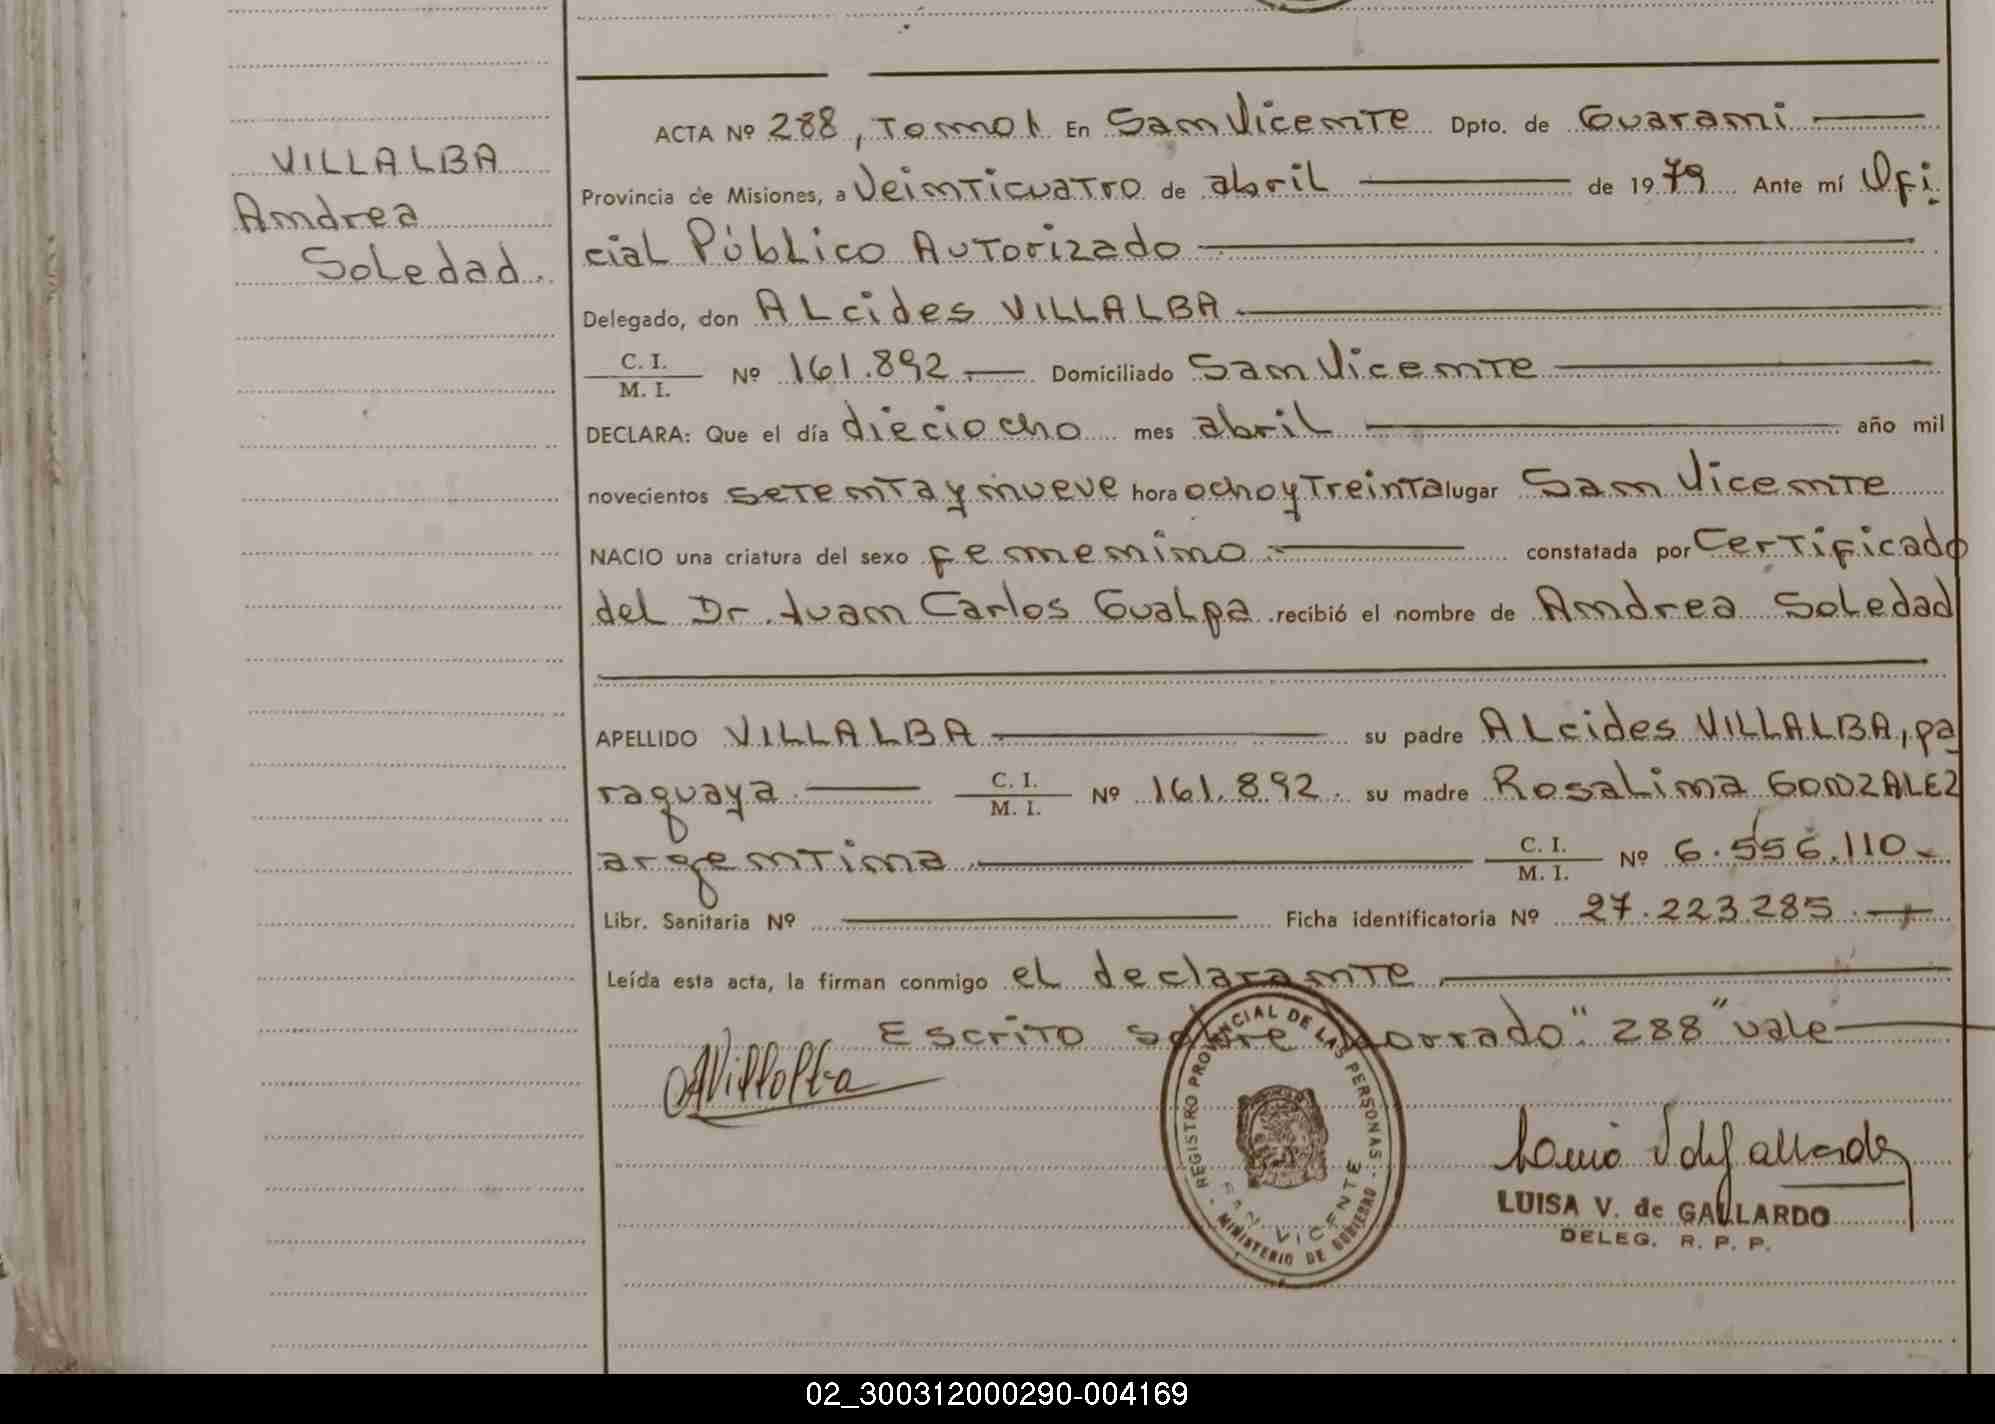 VILLALBA
Andrea
Soledad.
ACTA Nº 288, Tomo 1 En San Vicente Dpto. de Guaraní
Provincia de Misiones, a Veinticuatro de abril de 1979 Ante mí Ofi
cial Público Autorizado
Delegado, don Alcides VILLALBA
C. I.
M. I. Nº 161.892 Domiciliado San Vicente
DECLARA: Que el día dieciocho mes abril año mil
novecientos setenta y nueve hora ocho y treinta lugar San Vicente
NACIO una criatura del sexo femenino constatada por Certificado
del Dr. Juan Carlos Gualpa recibió el nombre de Andrea Soledad
APELLIDO VILLALBA su padre Alcides VILLALBA, pa
raguaya C. I.
M. I. Nº 161.892. su madre Rosalina GONZALEZ
argentina C. I.
M. I. Nº 6.556.110
Libr. Sanitaria Nº Ficha identificatoria Nº 27.223.285
Leída esta acta, la firman conmigo el declarante
Escrito sobre borrado: "288" vale
AVillalba
REGISTRO PROVINCIAL DE LAS PERSONAS
SAN VICENTE
MINISTERIO DE GOBIERNO
Luisa V de Gallardo
LUISA V. de GALLARDO
DELEG. R. P. P.
02_300312000290-004169